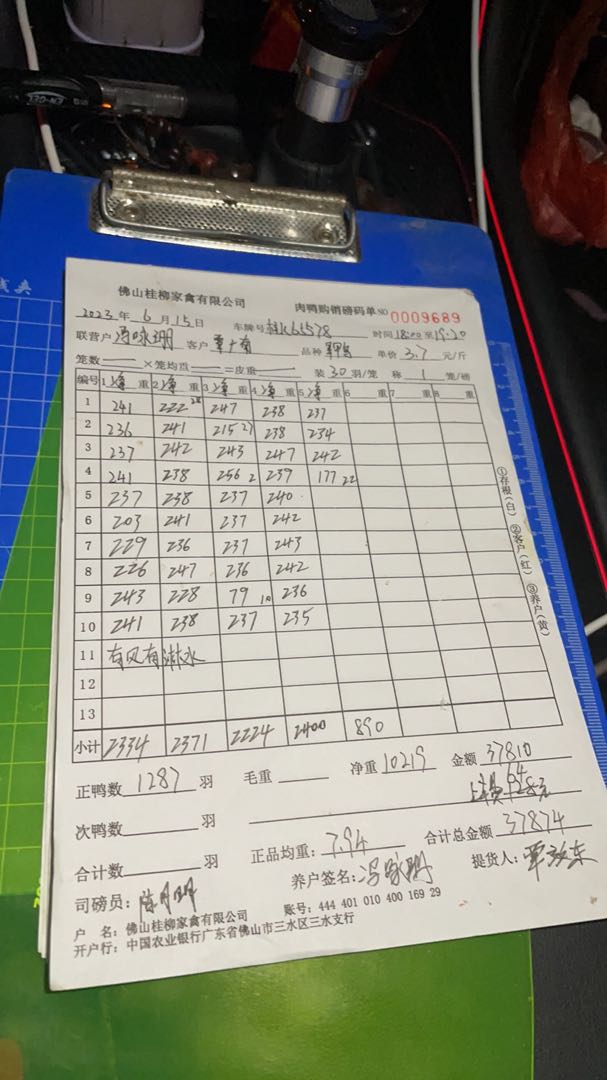 佛山桂柳家禽有限公司 肉鸭购销磅码单 NO 0009689
2023年 6 月 15 日 车牌号 时间 18:00 至 19:20
联营户 冯咏珊 客户 品种 单价 3.7 元/斤
笼数 ×笼均重 =皮重 装 30 羽/笼 称 1 笼/磅
编号 1 净 重 2 净 重 3 净 重 4 净 重 5 净 重 6 重 7 重 8 重
1 241 222 28 247 238 237
2 236 241 215 27 238 234
3 237 242 243 247 242
4 241 238 256 2 239 177 22
5 237 238 237 240
6 203 241 237 242
7 229 236 237 243
8 226 247 236 242
9 243 228 79 10 236
10 241 238 237 235
11 有风有淋水
12
13
小计 2334 2371 2224 2400 890
①存根(白) ②客户(红) ③养户(黄)
正鸭数 1287 羽 毛重 净重 10219 金额 37810
64
次鸭数 羽
合计数 羽 正品均重: 7.94 合计总金额 37874
司磅员: 养户签名: 冯咏珊 提货人:
户 名: 佛山桂柳家禽有限公司 账号: 444 401 010 400 169 29
开户行: 中国农业银行广东省佛山市三水区三水支行